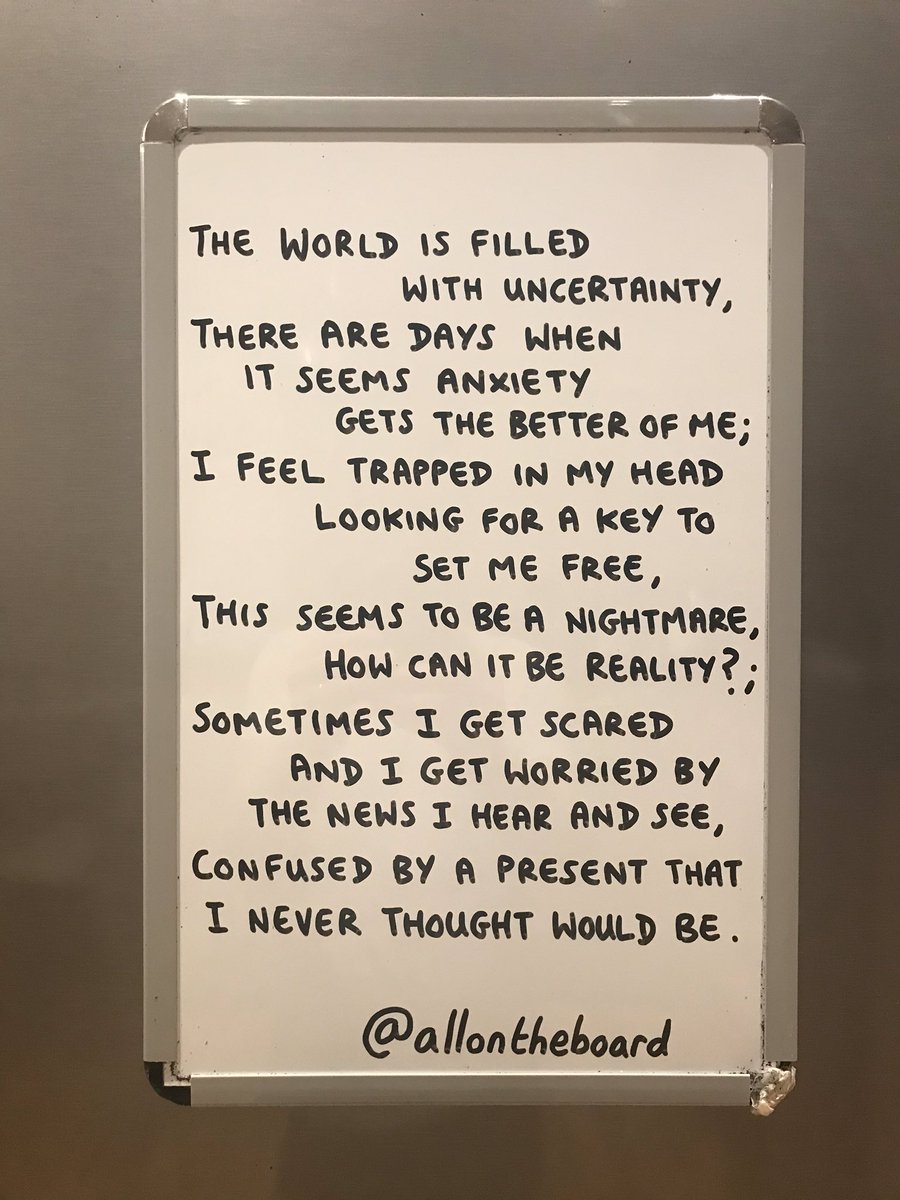 THE WORLD IS FILLED
WITH UNCERTAINTY,
THERE ARE DAYS WHEN
IT SEEMS ANXIETY
GETS THE BETTER OF ME;
I FEEL TRAPPED IN MY HEAD
LOOKING FOR A KEY TO
SET ME FREE,
THIS SEEMS TO BE A NIGHTMARE,
HOW CAN IT BE REALITY?;
SOMETIMES I GET SCARED
AND I GET WORRIED BY
THE NEWS I HEAR AND SEE,
CONFUSED BY A PRESENT THAT
I NEVER THOUGHT WOULD BE.
@allontheboard